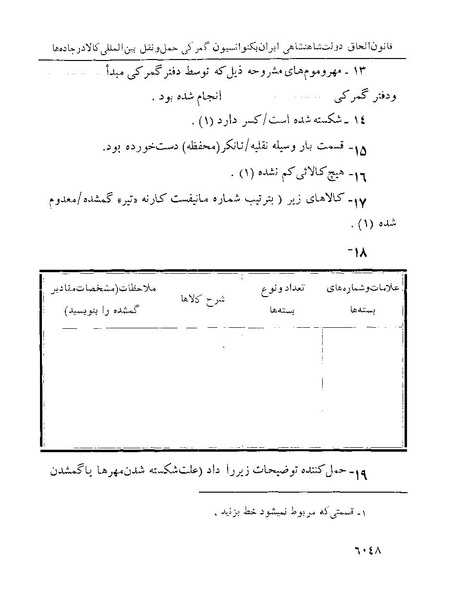 قانون الحاق دولت شاهنشاهی ایران بکنوانسیون گمرکی حمل و نقل بین‌المللی کالا در جاده‌ها
۱۳ - مهروموم‌های مشروحه ذیل که توسط دفتر گمرکی مبدأ
و دفتر گمرکی انجام شده بود .
۱۴ - شکسته شده است/کسر دارد (۱) .
۱۵- قسمت بار وسیله نقلیه/تانکر(محفظه) دست‌خورده بود.
۱۶- هیچ کالائی کم نشده (۱) .
۱۷- کالاهای زیر ( بترتیب شماره مانیفست کارنه «تیر» گمشده/معدوم
شده (۱) .
۱۸-
علامات و شماره‌های بسته‌ها
تعداد و نوع بسته‌ها
شرح کالاها
ملاحظات(مشخصات مقادیر گمشده را بنویسید)
۱۹- حمل کننده توضیحات زیر را داد (علت شکسته شدن مهرها یا گمشدن
۱- قسمتی که مربوط نمیشود خط بزنید .
۶۰۴۸